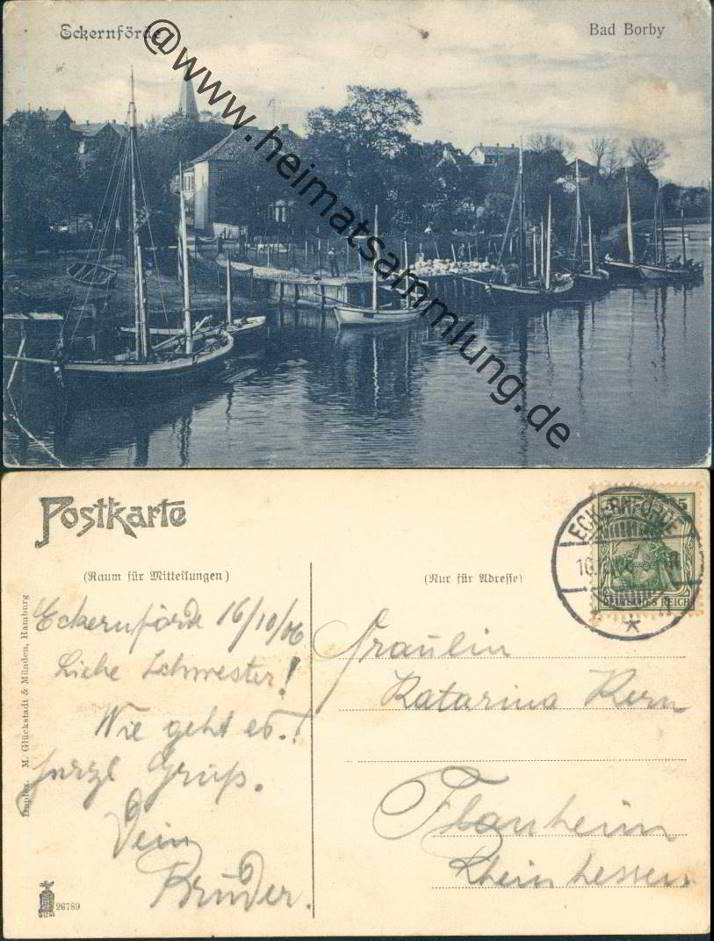 Eckernförde
Bad Borby
@www.heimatsammlung.de
Postkarte
(Raum für Mitteilungen)
(Nur für Adresse)
ECKERNFÖRDE
5
DEUTSCHES REICH
Eckernförde 16/10/06
Liebe Schwester!
Wie geht es.!
Herzl Gruß.
Dein
Bruder.
Fräulein
Katarina Kern
Flonheim
Rheinhessen
M. Glückstadt & Münden, Hamburg
26789